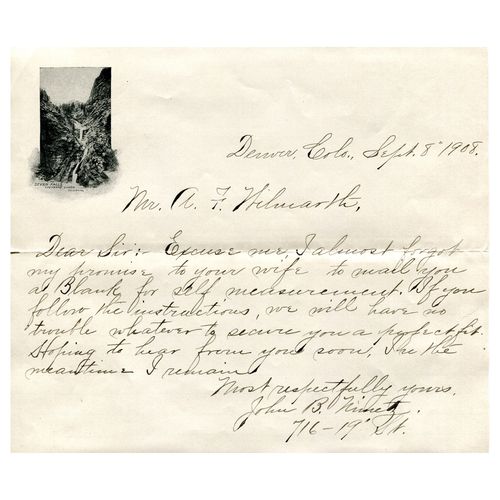 SEVEN FALLS
Denver, Colo., Sept. 8" 1908.
Mr. A. F. Wilmarth,
Dear Sir:- Excuse me, I almost forgot
my promise to your wife to mail you
a Blank for self measurement. If you
follow the instructions, we will have no
trouble whatever to secure you a perfect fit.
Hoping to hear from you soon, In the
meantime I remain
Most respectfully yours,
John B.
716-19" St.